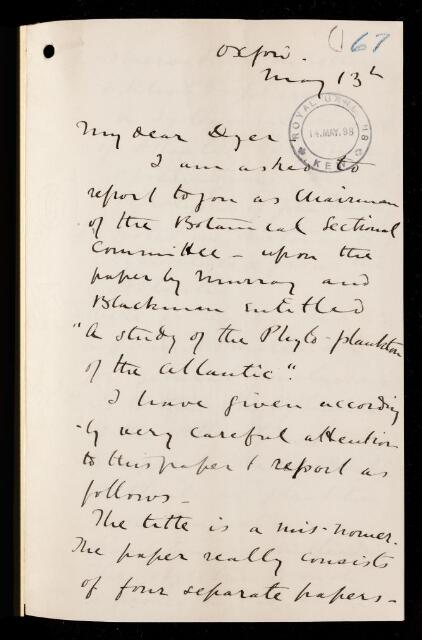 67
Oxford.
May 13th
ROYAL GARDENS
14.MAY.98
KEW
My dear Dyer
I am asked to
report to you as Chairman
of the Botanical Sectional
Committee - upon the
paper by Murray and
Blackman entitled
"A study of the Phyto-plankton
of the Atlantic".
I have given according
-ly very careful attention
to this paper & report as
follows -
The title is a mis-nomer.
The paper really consists
of four separate papers -